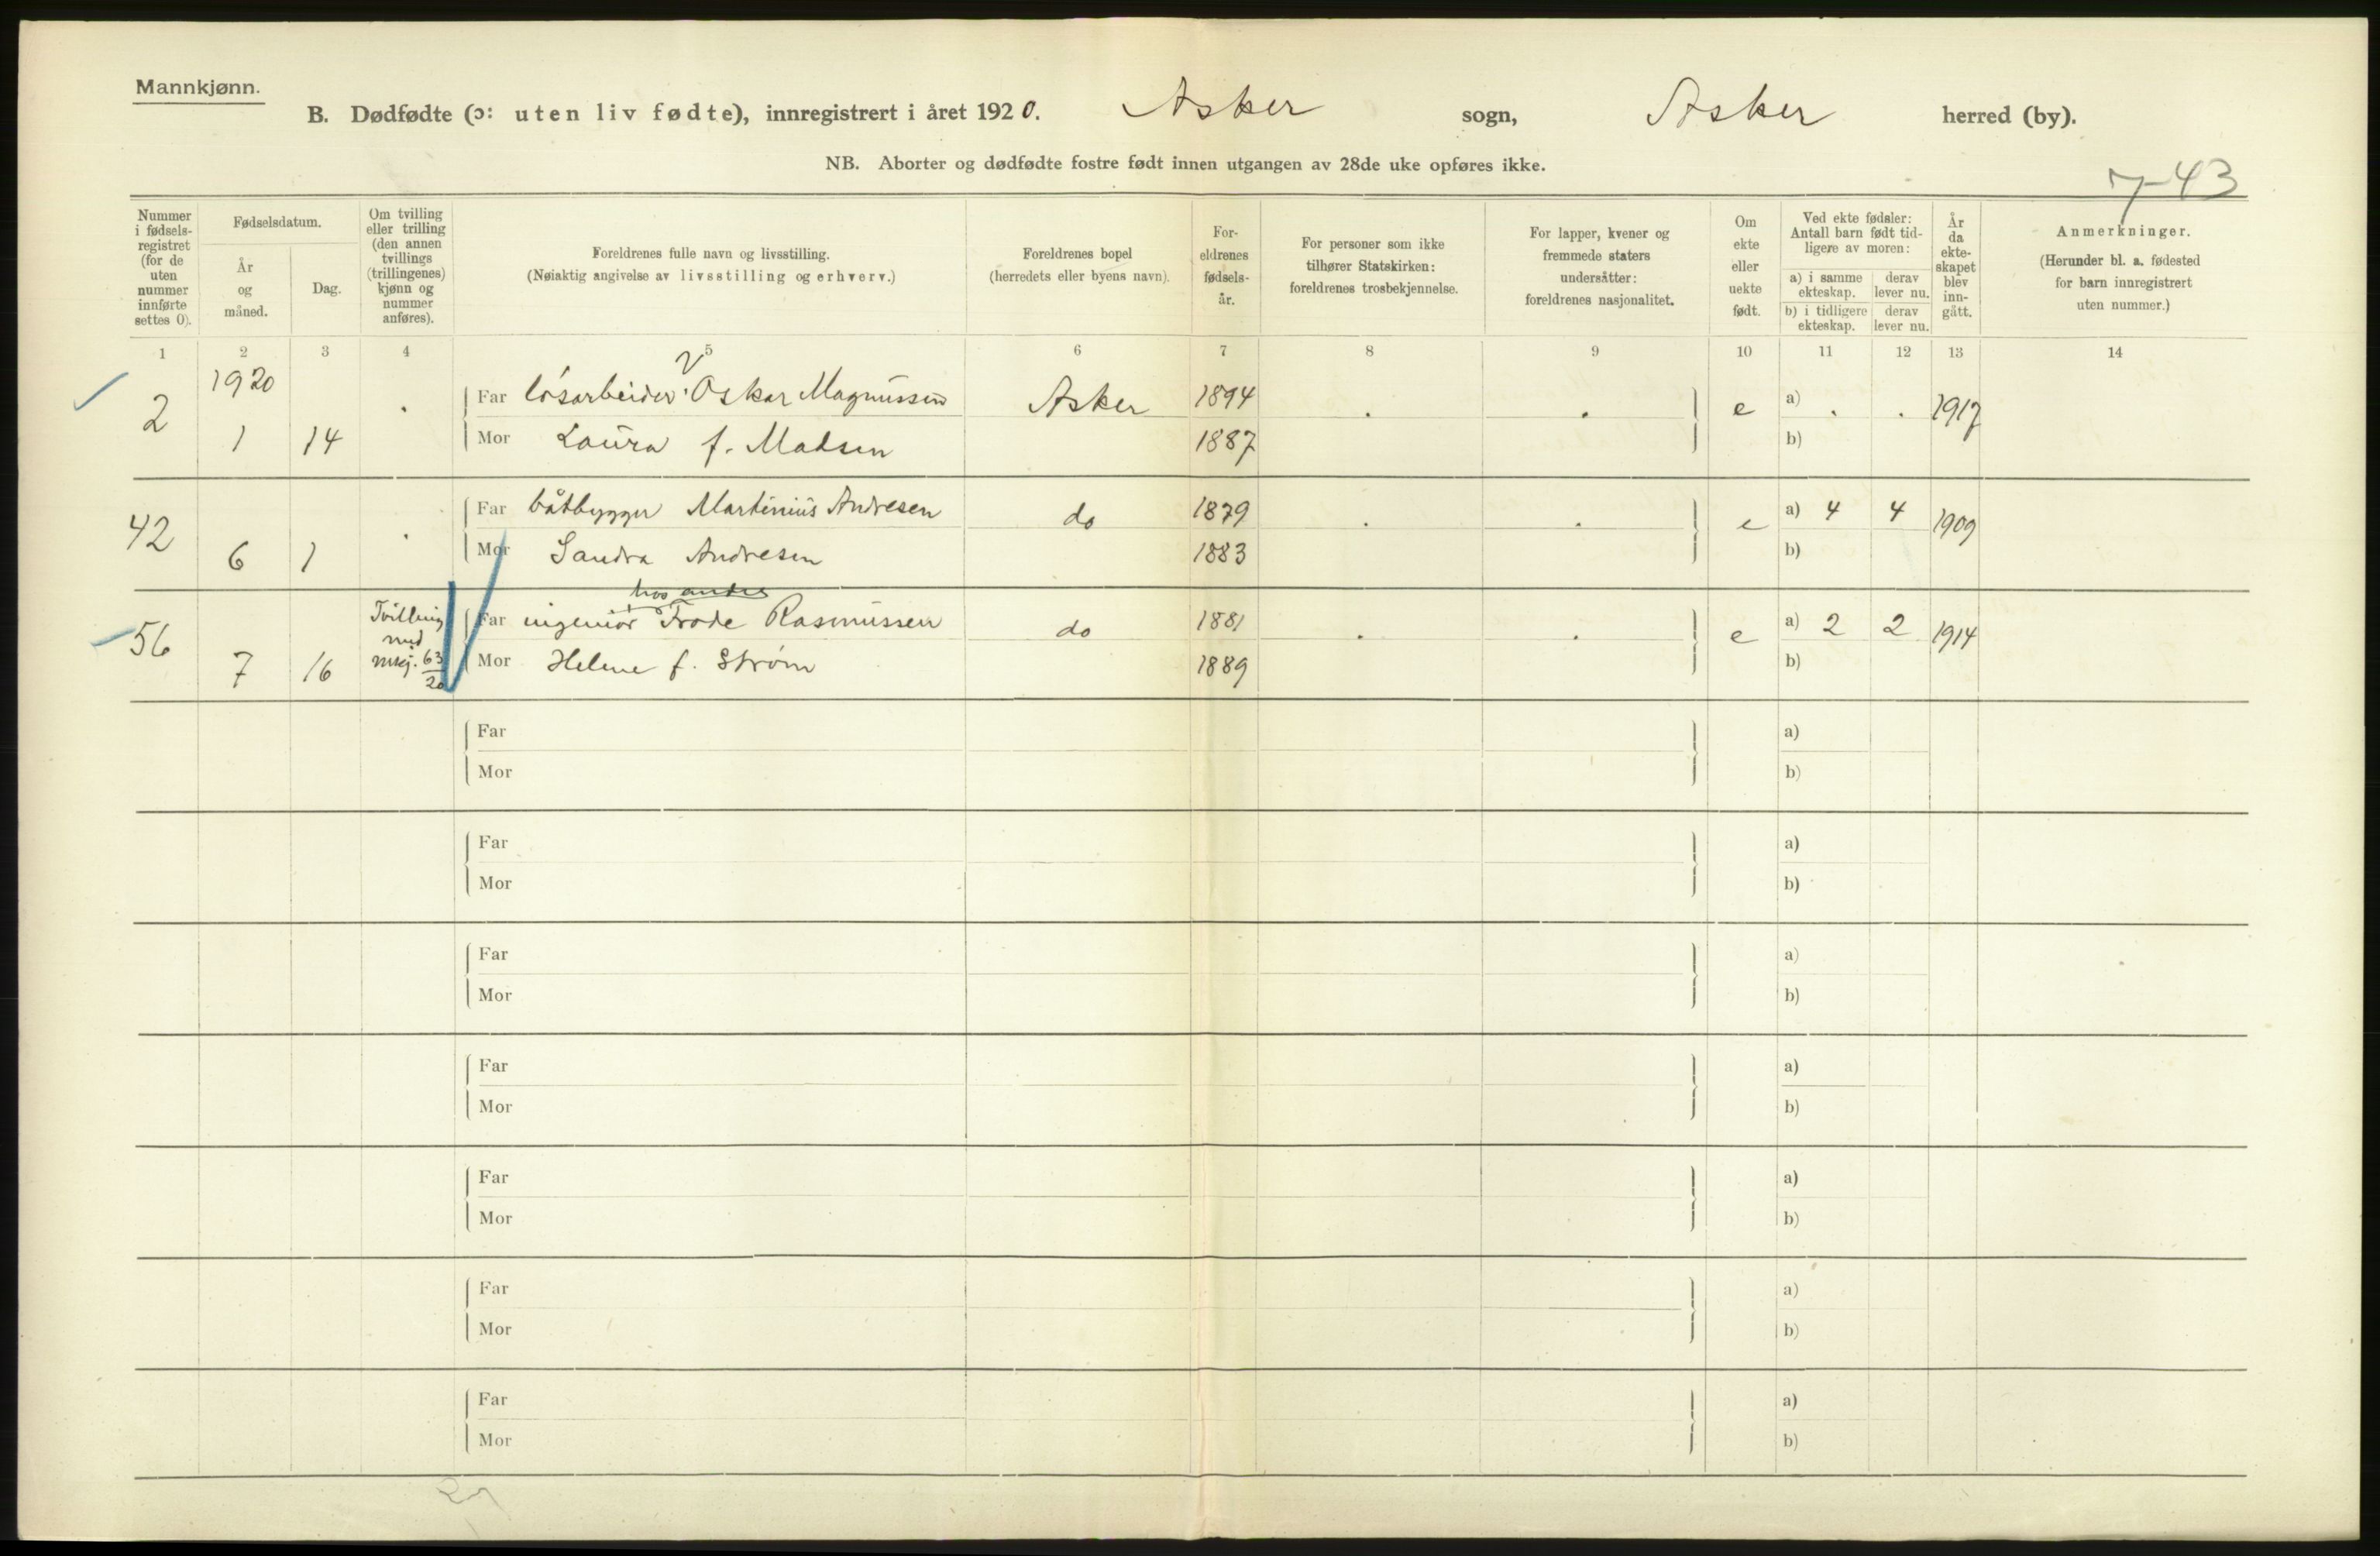 Mannkjønn.
B. Dødfødte (ɔ: uten liv fødte), innregistrert i året 1920. Asker sogn, Asker herred (by).
NB. Aborter og dødfødte fostre født innen utgangen av 28de uke opføres ikke.
7-43
Nummer i fødsels-registret (for de uten nummer innførte settes 0).
Fødselsdatum.
År og måned.
Dag.
Om tvilling eller trilling (den annen tvillings (trillingenes) kjønn og nummer anføres).
Foreldrenes fulle navn og livsstilling.
(Nøiaktig angivelse av livsstilling og erhverv.)
Foreldrenes bopel
(herredets eller byens navn).
For-eldrenes fødsels-år.
For personer som ikke tilhører Statskirken: foreldrenes trosbekjennelse.
For lapper, kvener og fremmede staters undersåtter: foreldrenes nasjonalitet.
Om ekte eller uekte født.
Ved ekte fødsler: Antall barn født tid-ligere av moren:
a) i samme ekteskap.
derav lever nu.
b) i tidligere ekteskap.
derav lever nu.
År da ekte-skapet blev inn-gått.
Anmerkninger.
(Herunder bl. a. fødested for barn innregistrert uten nummer.)
1 2 3 4 5 6 7 8 9 10 11 12 13 14
1920
2 1 14 . Far løsarbeider Oskar Magnussen Asker 1894 . . e a) . . 1917
Mor Laura f. Madsen 1887 b)
42 6 1 . Far båtbygger Martinius Andresen do 1879 . . e a) 4 4 1909
Mor Sandra Andresen 1883 b)
hos andre
56 7 16 Tvilling med mkj. 63/20 Far ingeniør Frode Rasmussen do 1881 . . e a) 2 2 1914
Mor Helene f. Strøm 1889 b)
Far a)
Mor b)
Far a)
Mor b)
Far a)
Mor b)
Far a)
Mor b)
Far a)
Mor b)
Far a)
Mor b)
Far a)
Mor b)